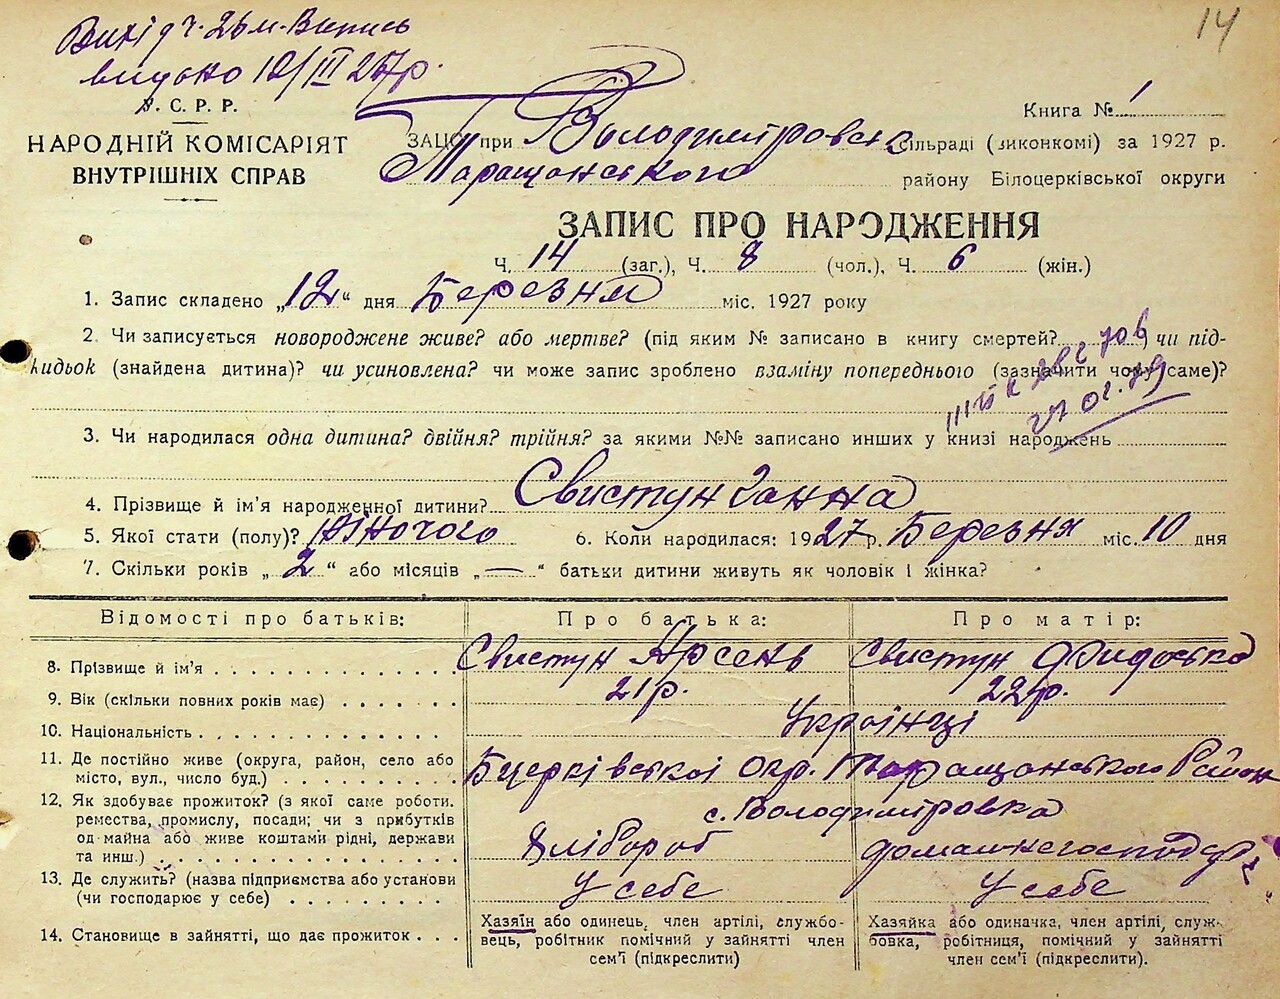 14
Вихід ч. 26 м. Випись
видано 12/III 27р.
У.С.Р.Р.
НАРОДНІЙ КОМІСАРІЯТ
ВНУТРІШНІХ СПРАВ
Книга № 1
ЗАЦС при Володимировск сільраді (виконкомі) за 1927 р.
Таращанського району Білоцерківської округи
ЗАПИС ПРО НАРОДЖЕННЯ
Ч. 14 (заг.), Ч. 8 (чол.), Ч. 6 (жін.)
1. Запис складено „12“ дня Березня міс. 1927 року
2. Чи записується новороджене живе? або мертве? (під яким № записано в книгу смертей? чи під-
кидьок (знайдена дитина)? чи усиновлена? чи може запис зроблено взаміну попереднього (зазначити чому саме)?
3. Чи народилася одна дитина? двійня? трійня? за якими №№ записано инших у книзі народжень
4. Прізвище й ім'я народженної дитини? Свистун Ганна
5. Якої стати (полу)? жіночого 6. Коли народилася: 1927 р. Березня міс. 10 дня
7. Скільки років „2“ або місяців „—“ батьки дитини живуть як чоловік і жінка?
Відомості про батьків: Про батька: Про матір:
8. Прізвище й ім'я Свистун Арсень Свистун Фидоська
9. Вік (скільки повних років має) 21р. 22р.
10. Національність Українці
11. Де постійно живе (округа, район, село або
місто, вул., число буд.) Бцерківської окр. Таращанського Район
с. Володимировка
12. Як здобуває прожиток? (з якої саме роботи,
ремества, промислу, посади; чи з прибутків
од майна або живе коштами рідні, держави
та инш.) Хлібороб
13. Де служить? (назва підприємства або установи
(чи господарює у себе) У себе У себе
14. Становище в зайнятті, що дає прожиток
Хазяїн або одинець, член артілі, службо-
вець, робітник помічний у зайнятті член
сем'ї (підкреслити)
Хазяйка або одиначка, член артілі, служ-
бовка, робітниця, помічний у зайнятті
член сем'ї (підкреслити).